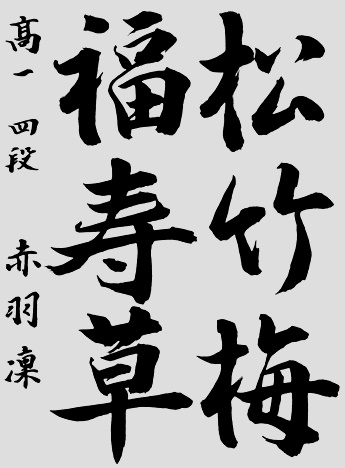 松竹梅
福寿草
高一 四段 赤羽凜